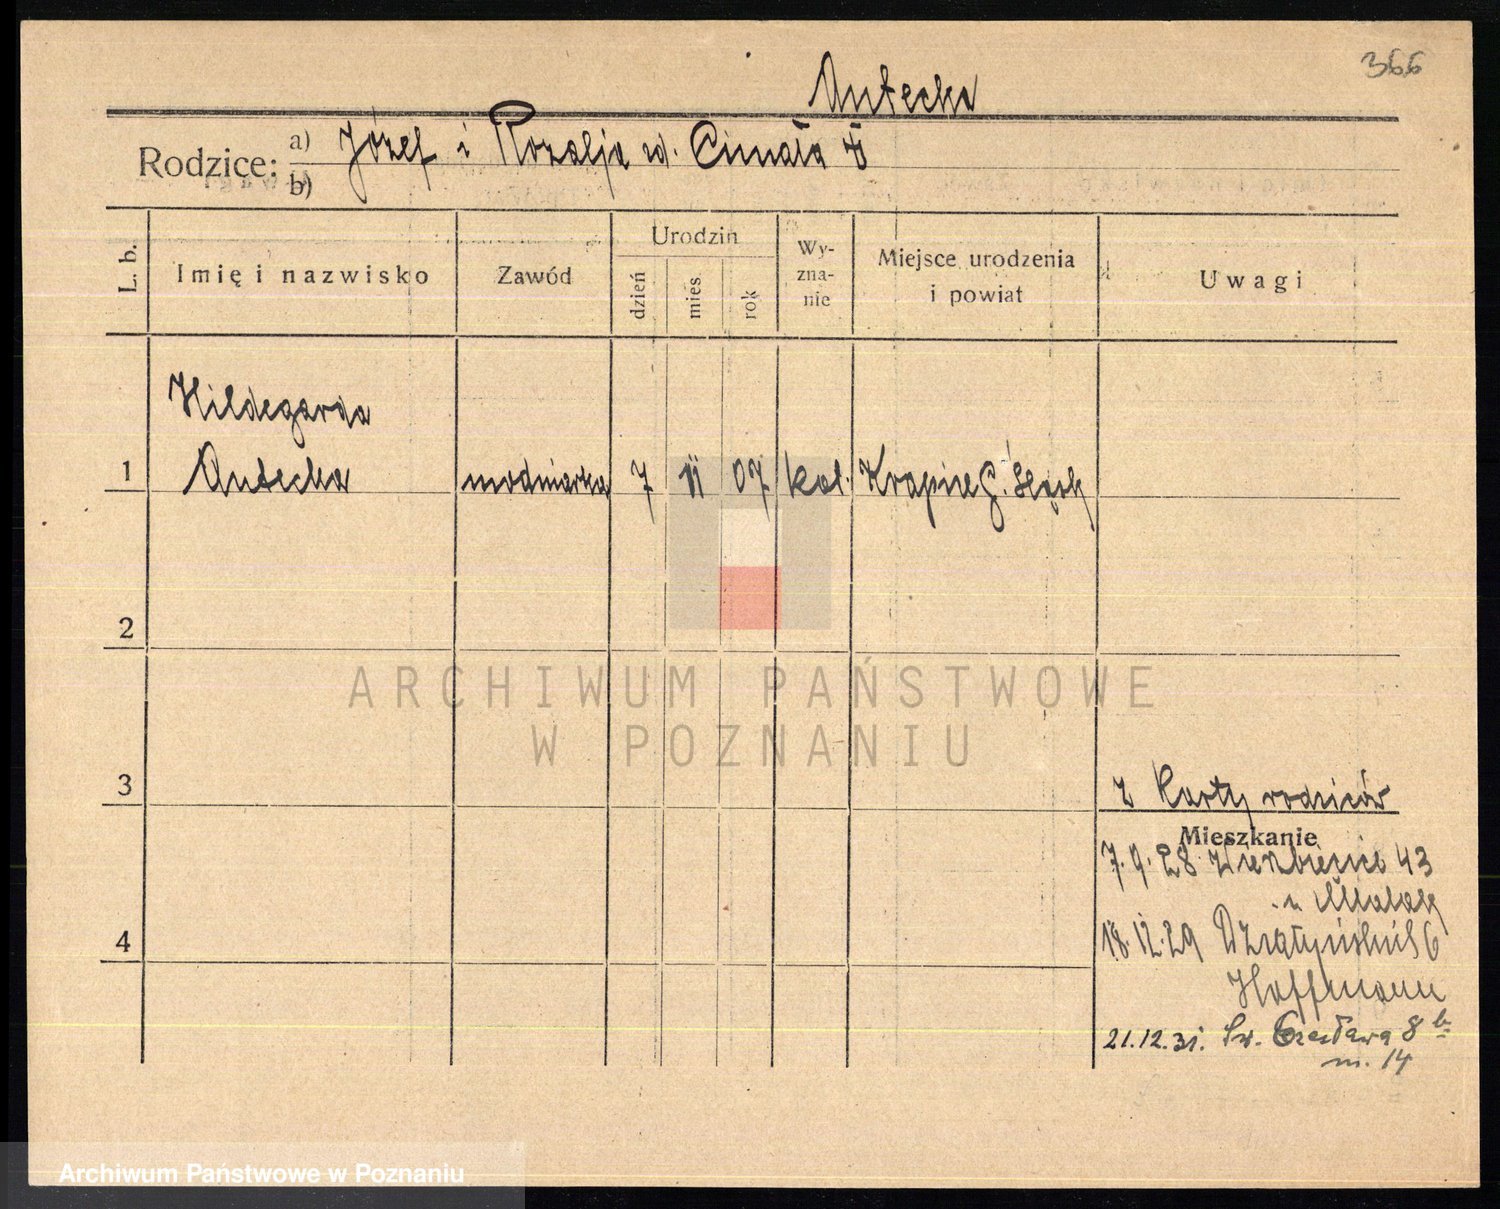 366
Antecka
Rodzice: a) Józef i Rozalja zd. Cimała
b)
L. b.
Imię i nazwisko
Zawód
Urodzin
dzień
mies
rok
Wy-
zna-
nie
Miejsce urodzenia
i powiat
Uwagi
Hildegarda
1 Antecka modniarka 7 11 07 kat. G. Śląsk
2
3
4
z Karty rodziców
Mieszkanie
7.9.28 43
18.12.29 6
Hoffmann
21.12.31. Św. Czesława 8 b
m. 14
ARCHIWUM PAŃSTWOWE
W POZNANIU
Archiwum Państwowe w Poznaniu